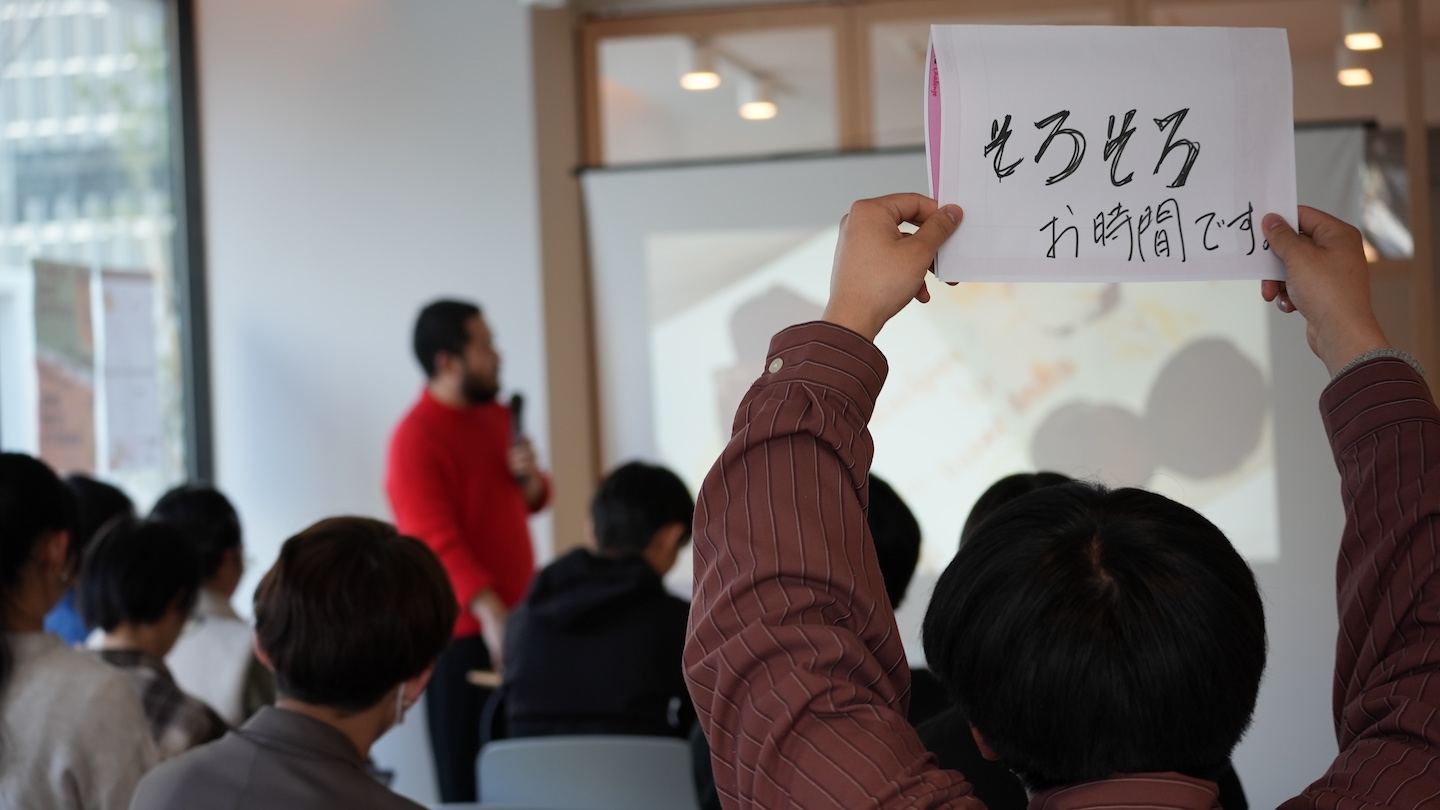 そろそろ
お時間です。